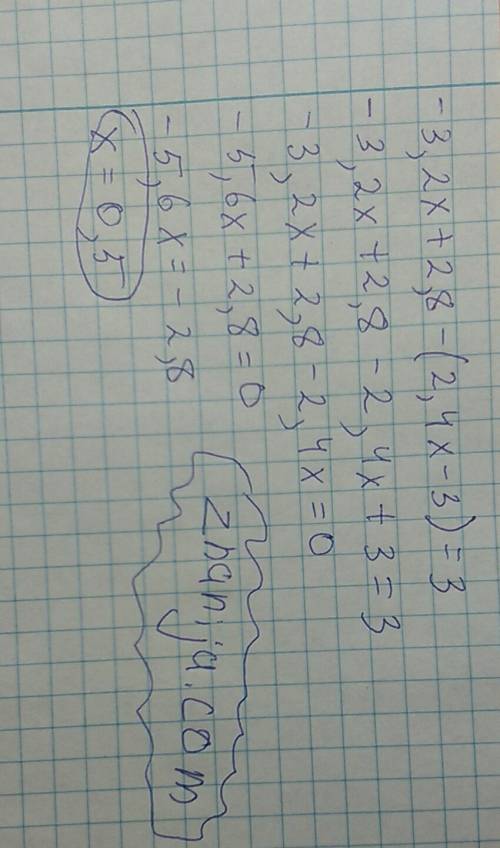 -3,2x+2,8-(2,4x-3)=3
-3,2x+2,8-2,4x+3=3
-3,2x+2,8-2,4x=0
-5,6x+2,8=0
-5,6x=-2,8
x=0,5
znanija.com